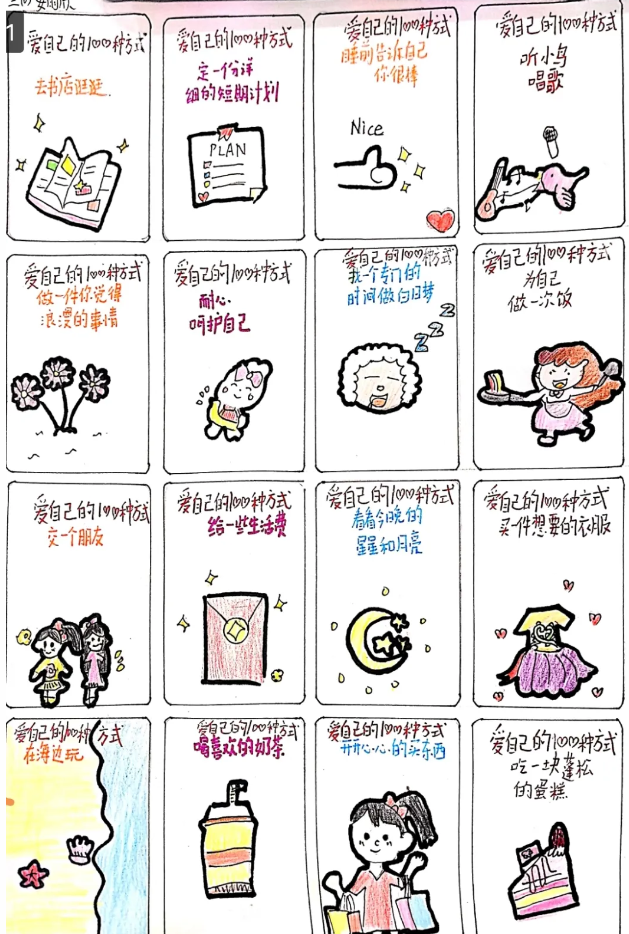 1
爱自己的100种方式
去书店逛逛.
爱自己的100种方式
定一份详
细的短期计划
PLAN
爱自己的100种方式
睡前告诉自己
你很棒
Nice
爱自己的100种方式
听小鸟
唱歌
爱自己的100种方式
做一件你觉得
浪漫的事情
爱自己的100种方式
耐心
呵护自己
爱自己的100种方式
找一个专门的
时间做白日梦
z z z
爱自己的100种方式
为自己
做一次饭
爱自己的100种方式
交一个朋友
爱自己的100种方式
给一些生活费
爱自己的100种方式
看看今晚的
星星和月亮
爱自己的100种方式
买一件想要的衣服
爱自己的100种方式
在海边玩
爱自己的100种方式
喝喜欢的奶茶
爱自己的100种方式
开开心心的买东西
爱自己的100种方式
吃一块蓬松
的蛋糕